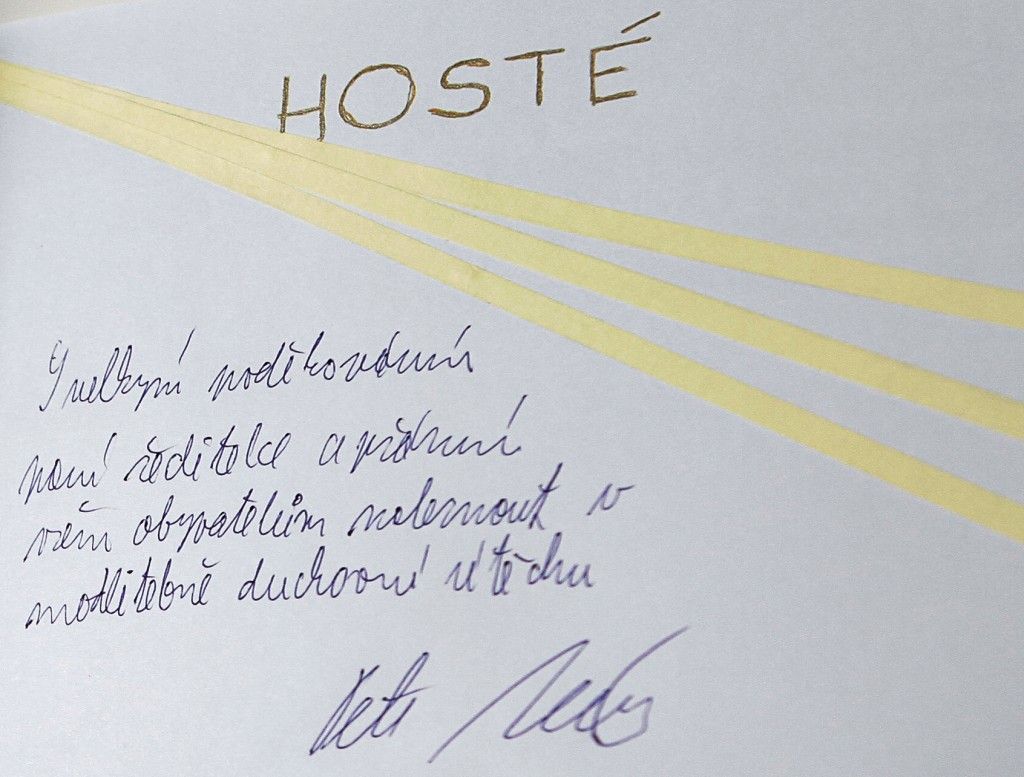 HOSTÉ
S velkým poděkováním
paní ředitelce a přáním
všem obyvatelům nalernout v
modlitebně duchovní útěchu
Petr